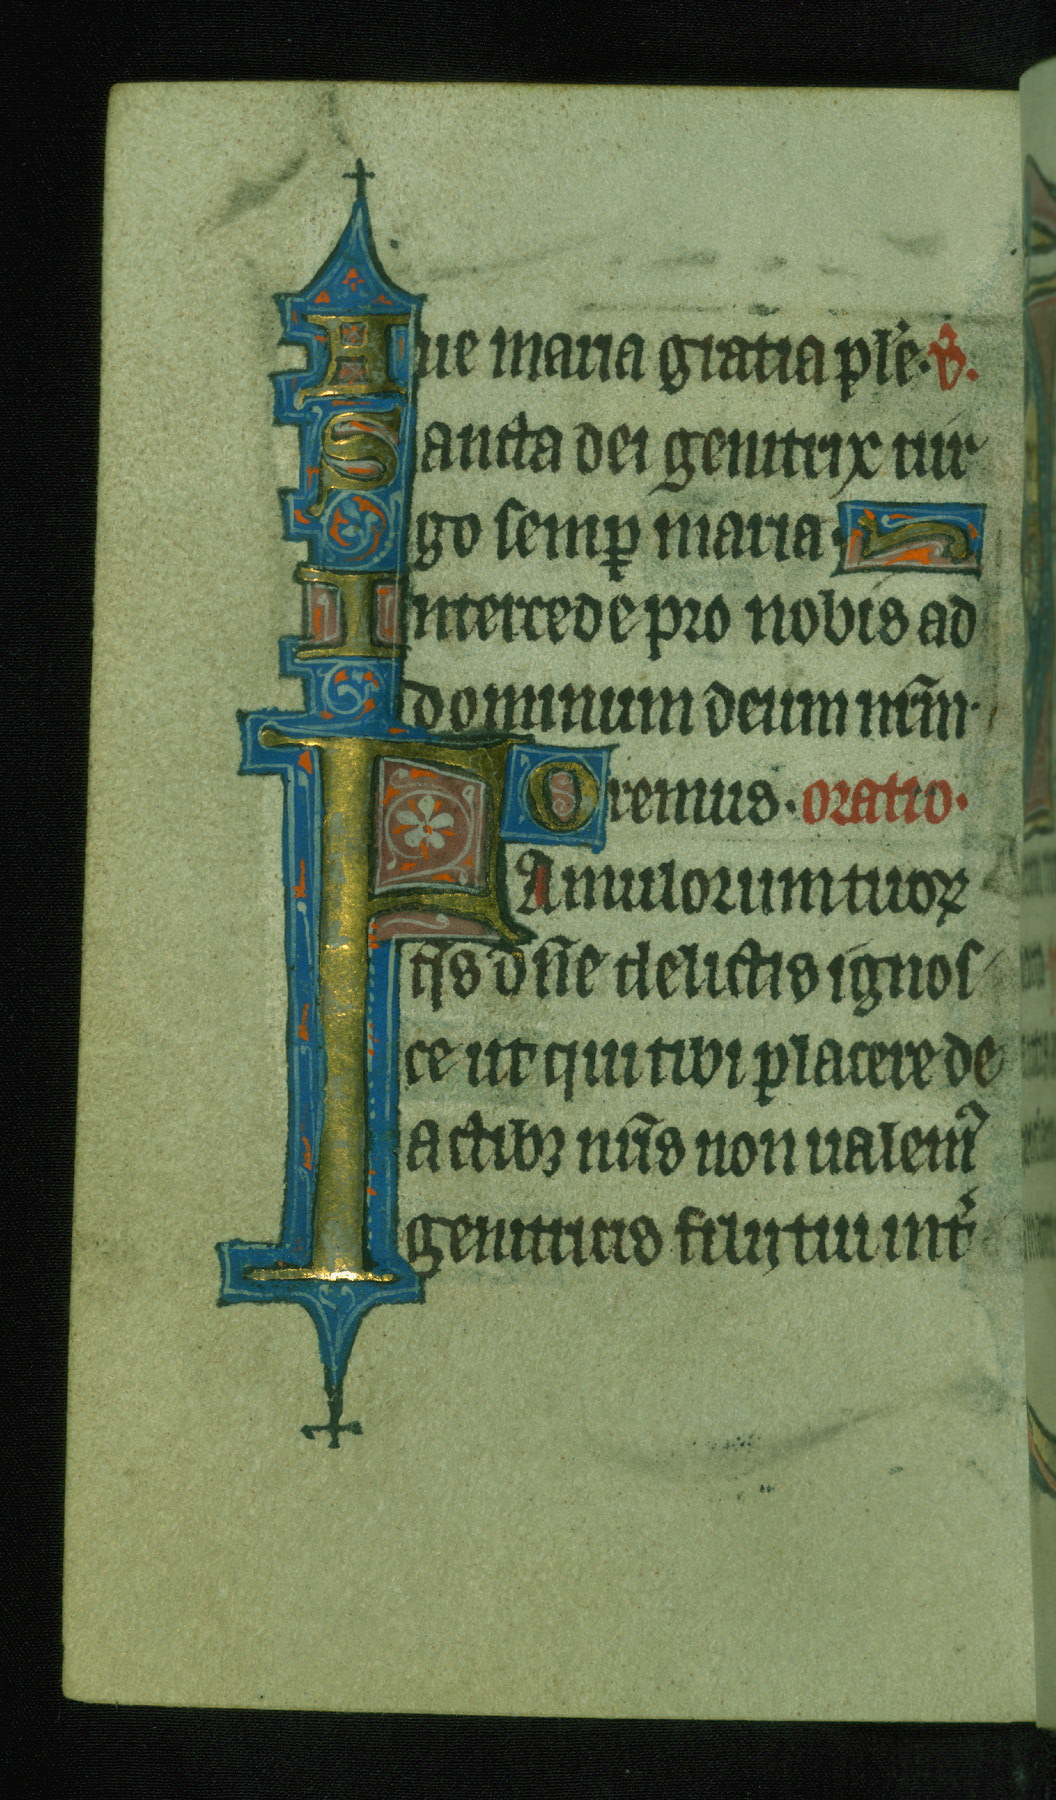 Aue maria gratia ple᷎. V̉.
Sancta dei genitrix uir
go semꝑ maria.
Intercede pro nobis ad
dominum deum nr̄m.
Oremus. oratio.
FAmulorum tuoꝝ
qͥs dn̄e delictis ignos
ce ut qui tibi placere de
actibꝫ nr̄is non ualemꝰ
genitricis filij tui int᷎